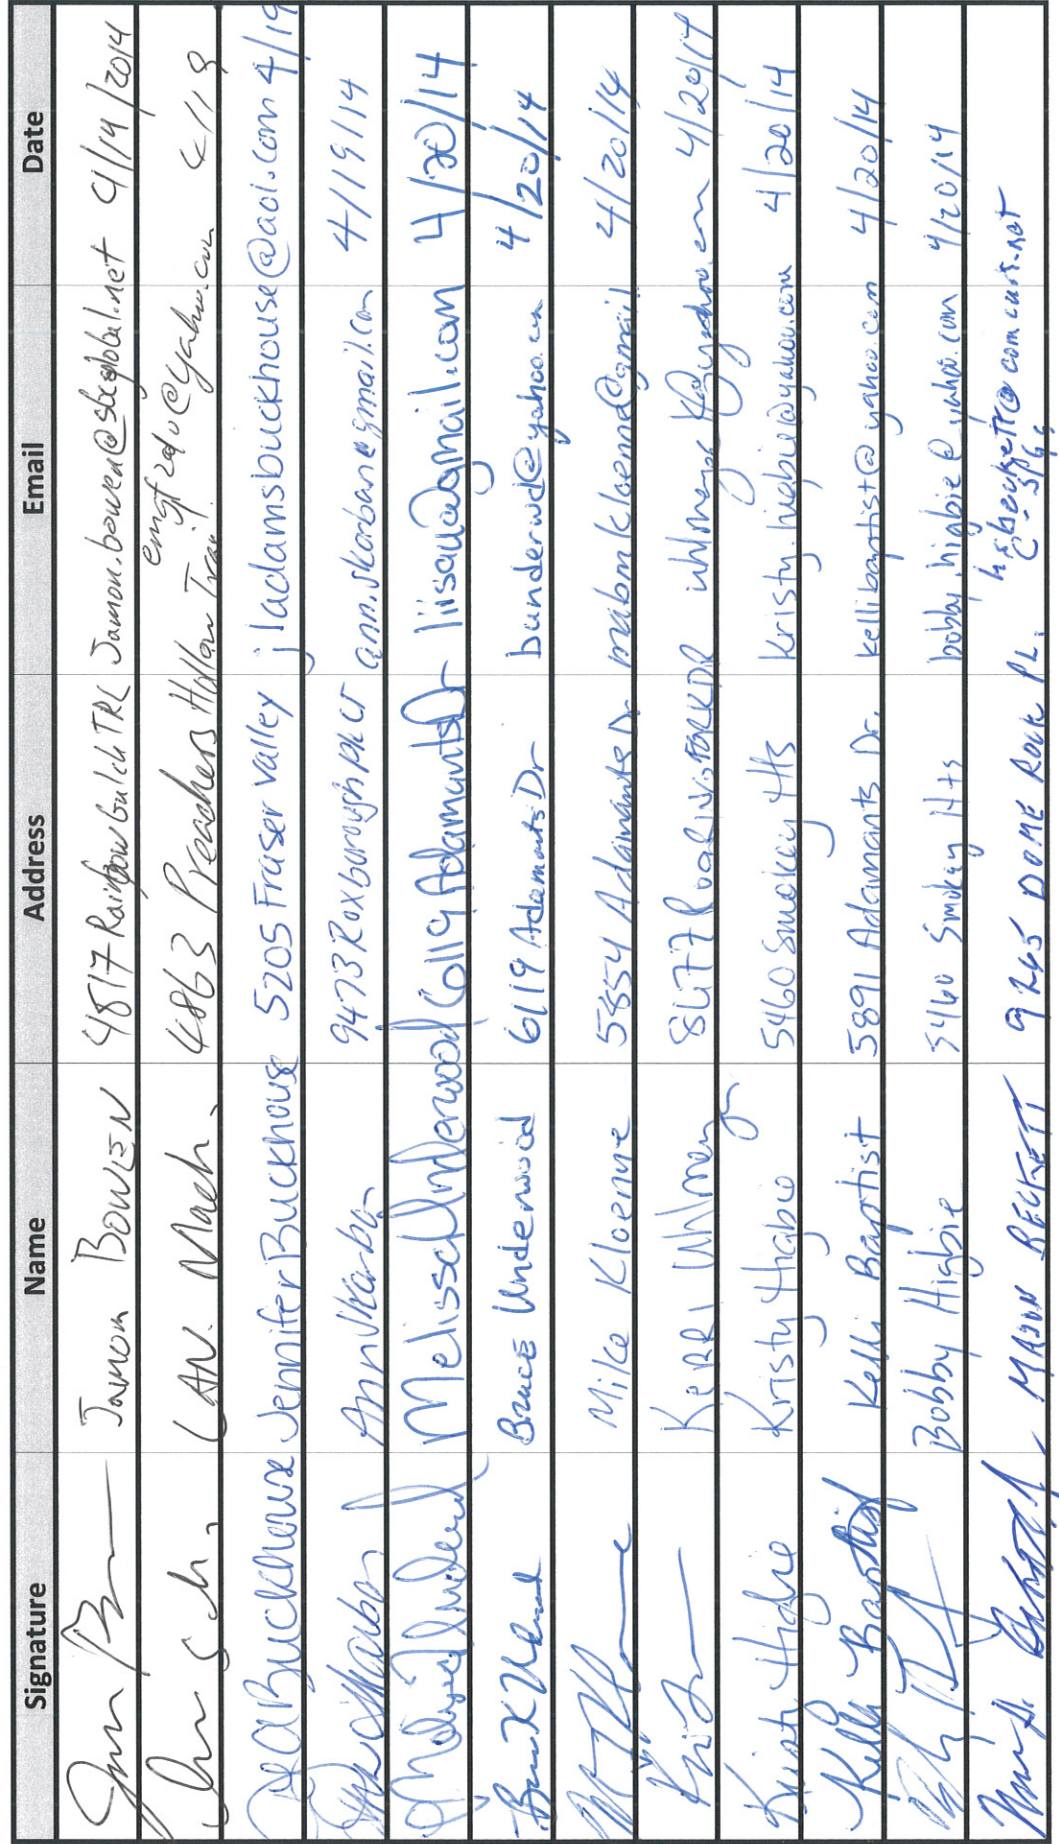 Signature Name Address Email Date
Jamon Bowen 4817 Rainbow Gulch TRL Jamon.bowen@sbcglobal.net 4/19/2014
4863 Preachers Hollow Trail @yahoo.com 4/19
JA Buckhouse Jennifer Buckhouse 5205 Fraser Valley jladamsbuckhouse@aol.com 4/19
Ann Skarban 9473 Roxborough Pk Ct ann.skorban@gmail.com 4/19/14
Melissa Underwood 6119 Adamants Dr liisau@gmail.com 4/20/14
Bruce Underwood 6119 Adamants Dr bunderwd@yahoo.com 4/20/14
Mike Kloenne 5854 Adamants Dr mabmkloenne@gmail 4/20/14
Kerri 8477 Roaring Fork DR @yahoo.com 4/20/14
Kristy Higbie Kristy Higbie 5460 Smokey Hts kristy.higbie@yahoo.com 4/20/14
Kelli Baptist Kelli Baptist 5891 Adamants Dr. kellibaptist@yahoo.com 4/20/14
Bobby Higbie 5460 Smokey Hts bobby.higbie@yahoo.com 4/20/14
MASON BECKETT 9265 DOME ROCK PL. @comcast.net